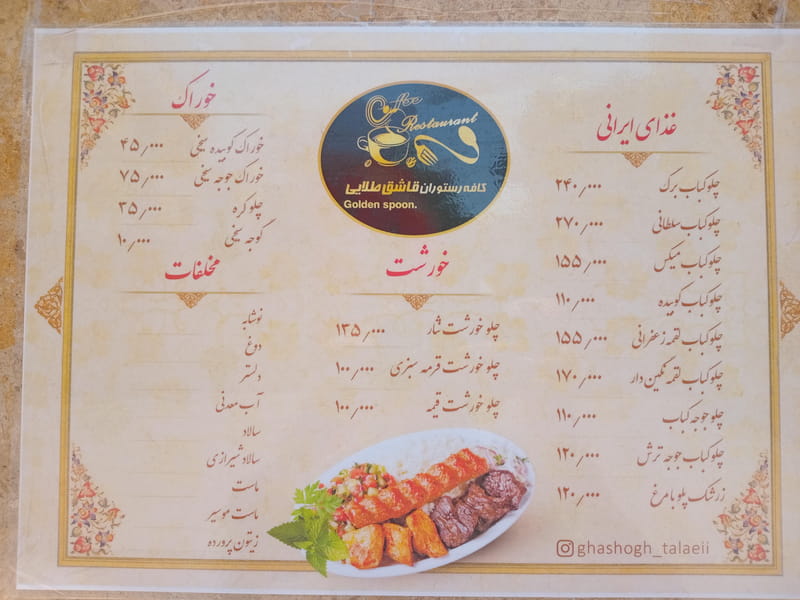 Coffee
Restaurant
کافه رستوران قاشق طلایی
Golden spoon.
غذای ایرانی
چلو کباب برگ ۲۴۰٫۰۰۰
چلو کباب سلطانی ۲۷۰٫۰۰۰
چلو کباب میکس ۱۵۵٫۰۰۰
چلو کباب کوبیده ۱۱۰٫۰۰۰
چلو کباب لقمه زعفرانی ۱۵۵٫۰۰۰
چلو کباب لقمه نگین دار ۱۷۰٫۰۰۰
چلو جوجه کباب ۱۱۰٫۰۰۰
چلو کباب جوجه ترش ۱۲۰٫۰۰۰
زرشک پلو با مرغ ۱۲۰٫۰۰۰
خورشت
چلو خورشت نثار ۱۳۵٫۰۰۰
چلو خورشت قرمه سبزی ۱۰۰٫۰۰۰
چلو خورشت قیمه ۱۰۰٫۰۰۰
خوراک
خوراک کوبیده سیخی ۴۵٫۰۰۰
خوراک جوجه سیخی ۷۵٫۰۰۰
چلو کره ۳۵٫۰۰۰
گوجه سیخی ۱۰٫۰۰۰
مخلفات
نوشابه
دوغ
دلستر
آب معدنی
سالاد
سالاد شیرازی
ماست
ماست موسیر
زیتون پرورده
ghashogh_talaeii